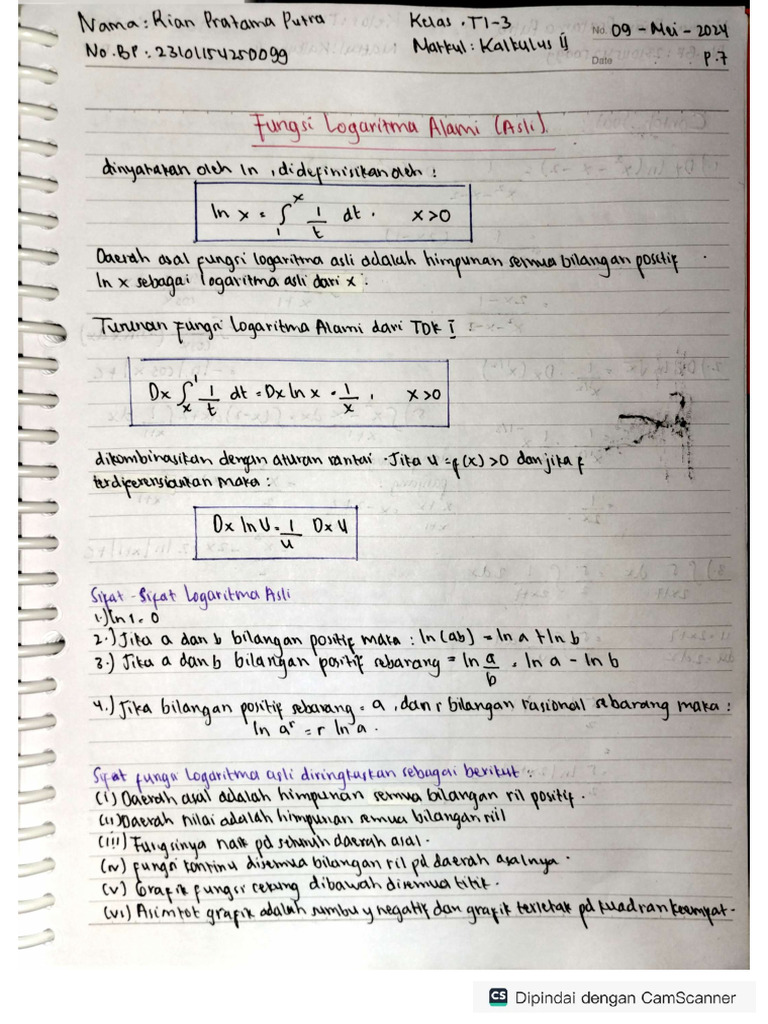 Nama : Rian Pratama Putra Kelas : TI-3 No. 09 - Mei - 2024
No.BP : 23101154250099 Matkul : Kalkulus II Date P.7
Fungsi Logaritma Alami (Asli).
dinyatakan oleh ln , didefinisikan oleh :
ln x = ∫₁ˣ 1/t dt . x>0
Daerah asal fungsi logaritma asli adalah himpunan semua bilangan positif
ln x sebagai logaritma asli dari x.
Turunan Fungsi Logaritma Alami dari TDK I :
Dx ∫ₓ¹ 1/t dt = Dx ln x = 1/x , x>0
dikombinasikan dengan aturan rantai . Jika u = f(x) >0 dan jika f
terdiferensialkan maka :
Dx ln U = 1/u Dx U
Sifat - Sifat Logaritma Asli
1.) ln 1 = 0
2.) Jika a dan b bilangan positif maka : ln (ab) = ln a + ln b
3.) Jika a dan b bilangan positif sebarang = ln a/b = ln a - ln b
4.) Jika bilangan positif sebarang = a , dan r bilangan rasional sebarang maka :
ln aʳ = r ln a .
Sifat fungsi Logaritma asli diringkaskan sebagai berikut :
(i) Daerah asal adalah himpunan semua bilangan ril positif .
(ii) Daerah nilai adalah himpunan semua bilangan riil
(iii) Fungsinya naik pd seluruh daerah asal .
(iv) fungsi kontinu disemua bilangan ril pd daerah asalnya .
(v) Grafik fungsi cekung dibawah disemua titik .
(vi) Asimtot grafik adalah sumbu y negatif dan grafik terletak pd kuadran keempat .
CS Dipindai dengan CamScanner